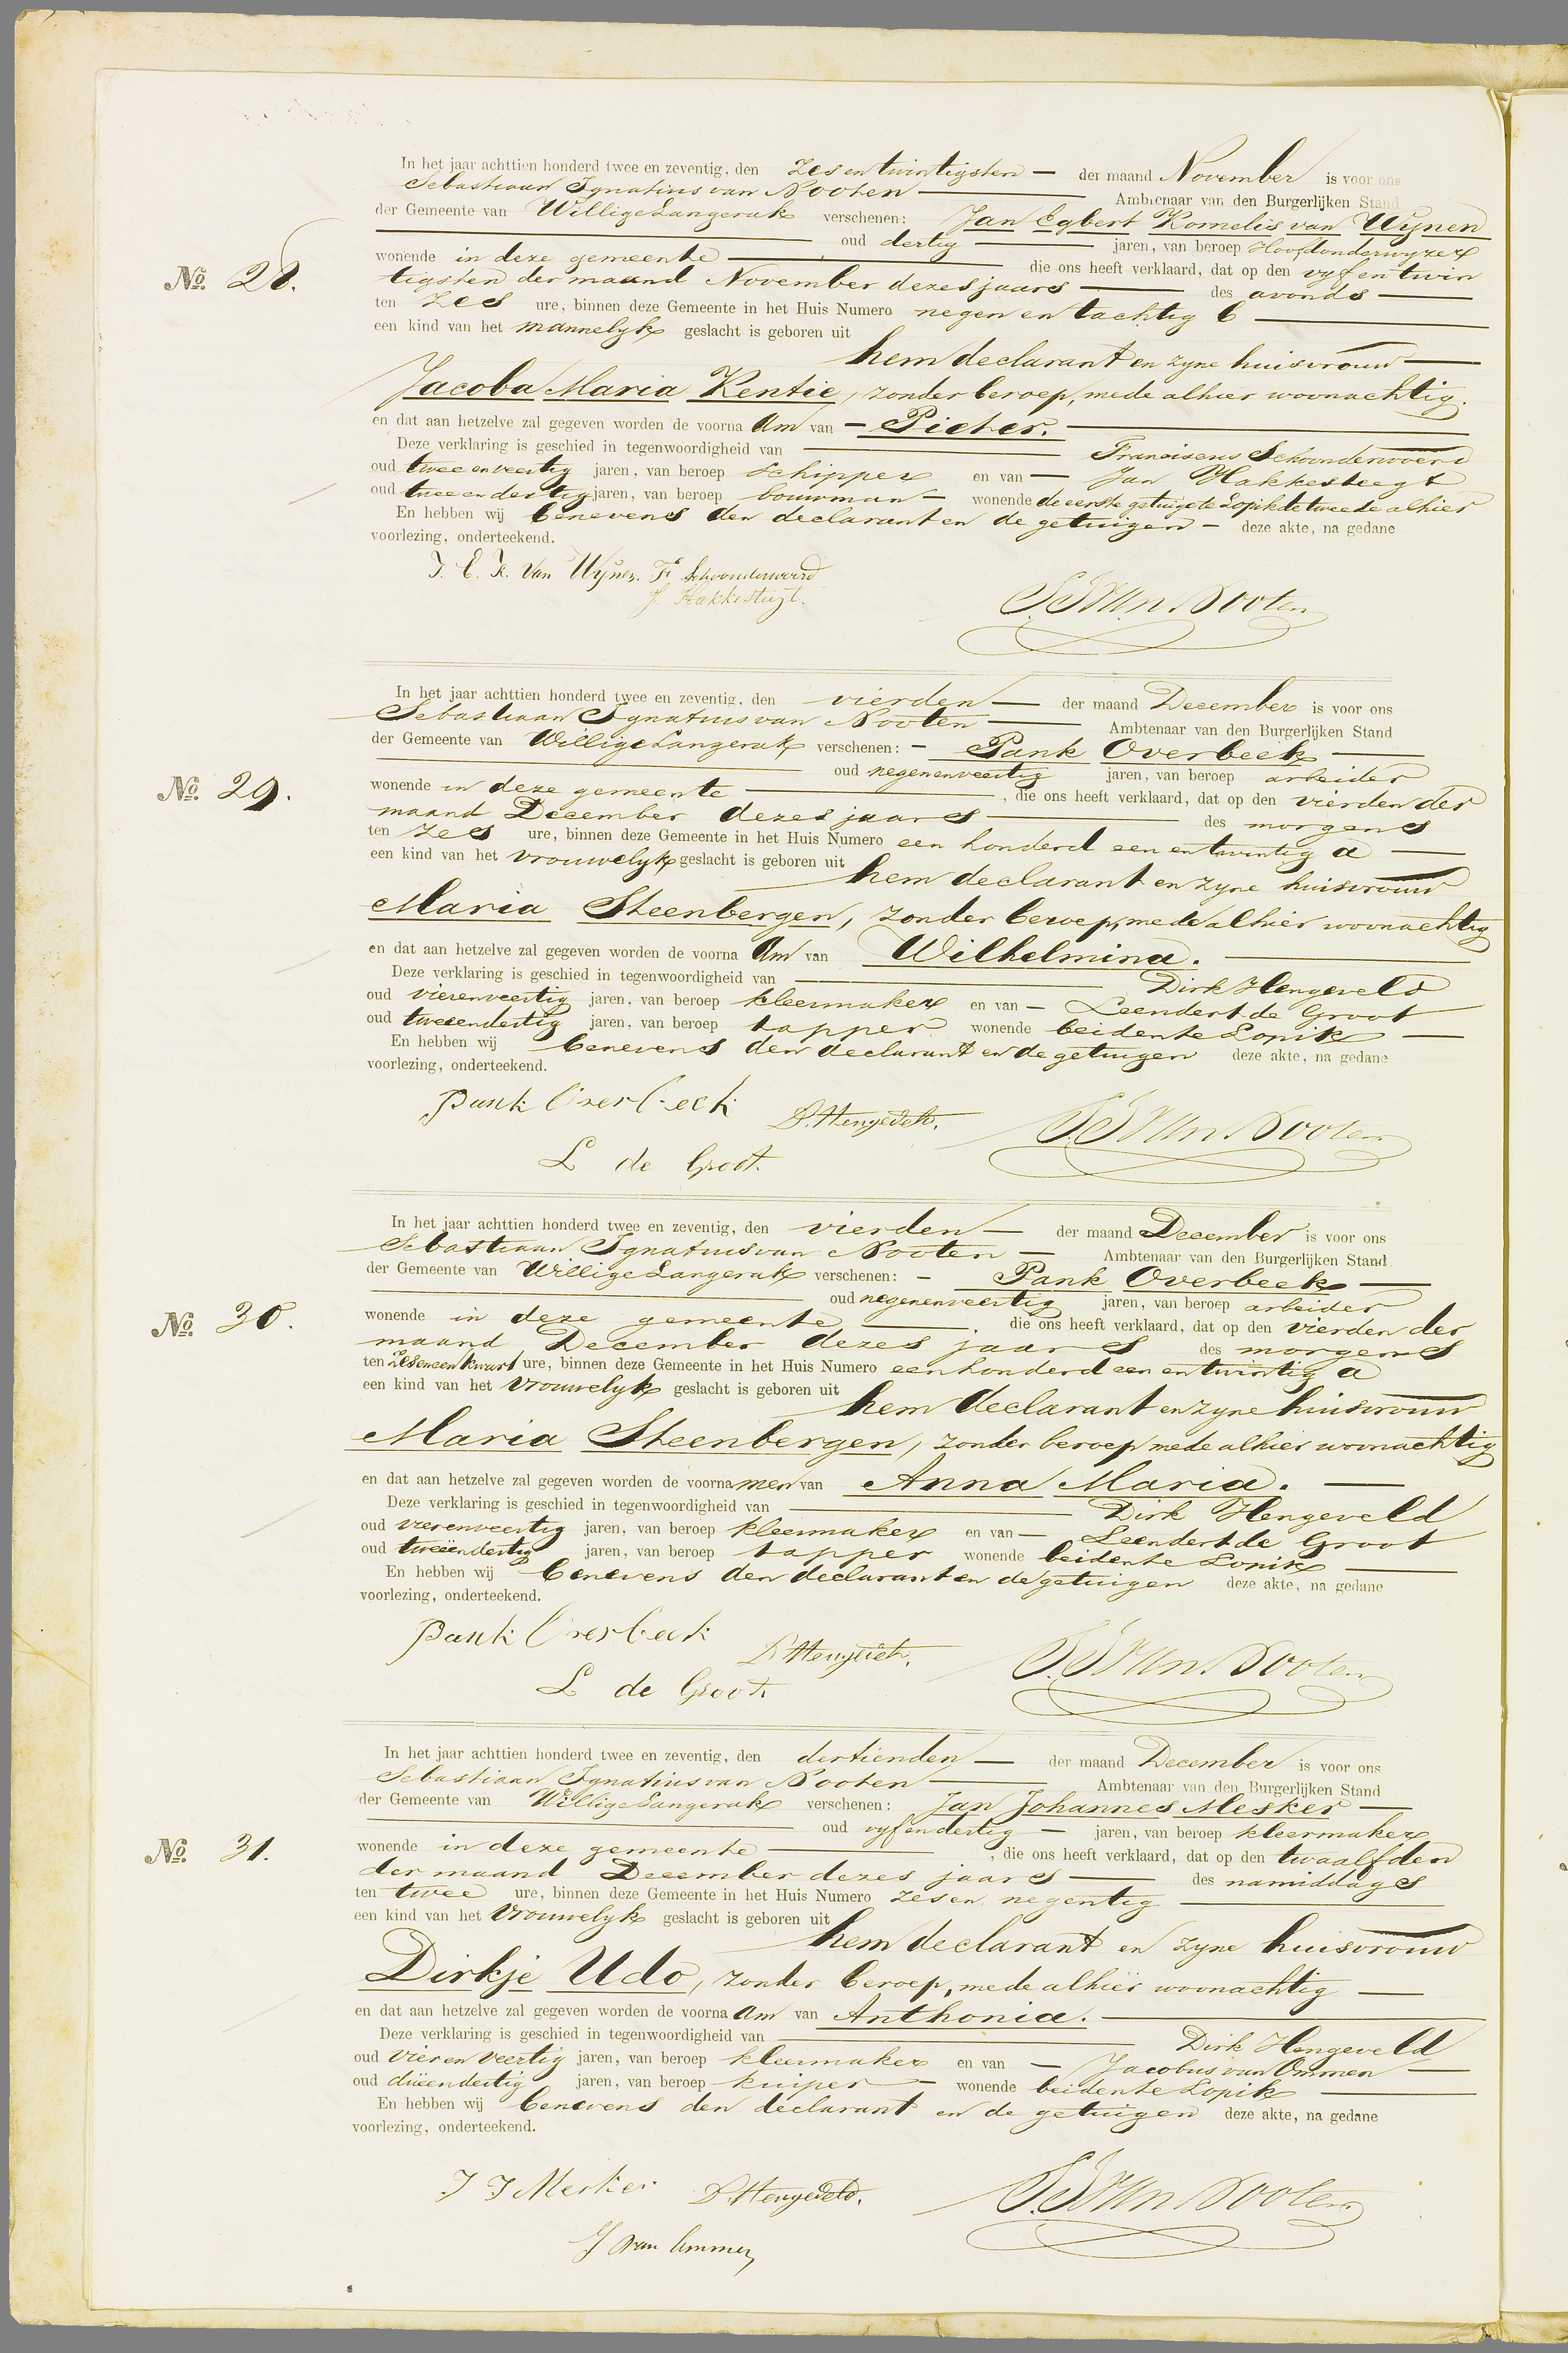 In het jaar achttien honderd twee en zeventig, den zes en twintigsten — der maand November is voor ons
Sebastiaan Ignatius van Nooten — Ambtenaar van den Burgerlijken Stand
der Gemeente van Willige Langerak verschenen: Jan Egbert Kornelis van Wijnen
oud dertig — jaren, van beroep Hoofdonderwyzer
No. 28. wonende in deze gemeente — die ons heeft verklaard, dat op den vyf en twin
tigsten der maand November dezes jaars — des avonds —
ten zes ure, binnen deze Gemeente in het Huis Numero negen en tachtig b —
een kind van het mannelyk geslacht is geboren uit
hem declarant en zyne huisvrouw —
Jacoba Maria Kentie, zonder beroep, mede alhier woonachtig.
en dat aan hetzelve zal gegeven worden de voorna Am van — Pieter. —
Deze verklaring is geschied in tegenwoordigheid van — Franciscus Schoonderwoerd
oud twee en veertig jaren, van beroep schipper en van — Jan Hakkesteegt
oud twee en dertig jaren, van beroep bouwman — wonende de eerste getuige te Lopik de tweede alhier
En hebben wij benevens den declarant en de getuigen — deze akte, na gedane
voorlezing, onderteekend.
J. E. K. van Wijnen. F Schoonderwoerd
J. Hakkesteegt.
S. I. van Nooten
In het jaar achttien honderd twee en zeventig, den vierden — der maand December is voor ons
Sebastiaan Ignatius van Nooten — Ambtenaar van den Burgerlijken Stand
der Gemeente van Willige Langerak verschenen: — Pank Overbeek —
oud negenenveertig jaren, van beroep arbeider
No. 29. wonende in deze gemeente —, die ons heeft verklaard, dat op den vierden der
maand December dezes jaars — des morgens
ten zes ure, binnen deze Gemeente in het Huis Numero een honderd een en twintig a —
een kind van het vrouwelyk geslacht is geboren uit
hem declarant en zyne huisvrouw
Maria Steenbergen, zonder beroep, mede alhier woonachtig
en dat aan hetzelve zal gegeven worden de voorna Am van Wilhelmina. —
Deze verklaring is geschied in tegenwoordigheid van — Dirk Hengeveld
oud vierenveertig jaren, van beroep kleermaker en van — Leendert de Groot
oud tweeendertig jaren, van beroep tapper wonende beiden te Lopik —
En hebben wij benevens den declarant en de getuigen deze akte, na gedane
voorlezing, onderteekend.
Pank Overbeek D. Hengeveld. S. I. van Nooten
L de Groot.
In het jaar achttien honderd twee en zeventig, den vierden — der maand December is voor ons
Sebastiaan Ignatius van Nooten — Ambtenaar van den Burgerlijken Stand
der Gemeente van Willige Langerak verschenen: — Pank Overbeek —
oud negenenveertig jaren, van beroep arbeider
No. 30. wonende in deze gemeente —, die ons heeft verklaard, dat op den vierden der
maand December dezes jaars des morgens
ten zes en een kwart ure, binnen deze Gemeente in het Huis Numero een honderd een en twintig a
een kind van het vrouwelyk geslacht is geboren uit
hem declarant en zyne huisvrouw
Maria Steenbergen, zonder beroep mede alhier woonachtig
en dat aan hetzelve zal gegeven worden de voorna men van Anna Maria. —
Deze verklaring is geschied in tegenwoordigheid van — Dirk Hengeveld
oud vierenveertig jaren, van beroep kleermaker en van — Leendert de Groot
oud tweeëndertig jaren, van beroep tapper wonende beiden te Lopik —
En hebben wij benevens den declarant en de getuigen deze akte, na gedane
voorlezing, onderteekend.
Pank Overbeek D. Hengeveld. S. I. van Nooten
L de Groot.
In het jaar achttien honderd twee en zeventig, den dertienden — der maand December is voor ons
Sebastiaan Ignatius van Nooten — Ambtenaar van den Burgerlijken Stand
der Gemeente van Willige Langerak verschenen: Jan Johannes Mesker —
oud vyf en dertig — jaren, van beroep kleermaker
No. 31. wonende in deze gemeente —, die ons heeft verklaard, dat op den twaalfden
der maand December dezes jaars — des namiddags
ten twee ure, binnen deze Gemeente in het Huis Numero zes en negentig —
een kind van het vrouwelyk geslacht is geboren uit
hem declarant en zyne huisvrouw
Dirkje Udo, zonder beroep, mede alhier woonachtig —
en dat aan hetzelve zal gegeven worden de voorna Am van Anthonia. —
Deze verklaring is geschied in tegenwoordigheid van — Dirk Hengeveld
oud vier en veertig jaren, van beroep kleermaker en van — Jacobus van Ommen —
oud drieendertig jaren, van beroep kuiper — wonende beiden te Lopik —
En hebben wij benevens den declarant en de getuigen deze akte, na gedane
voorlezing, onderteekend.
J J Mesker D. Hengeveld. S. I. van Nooten
J van Ommen